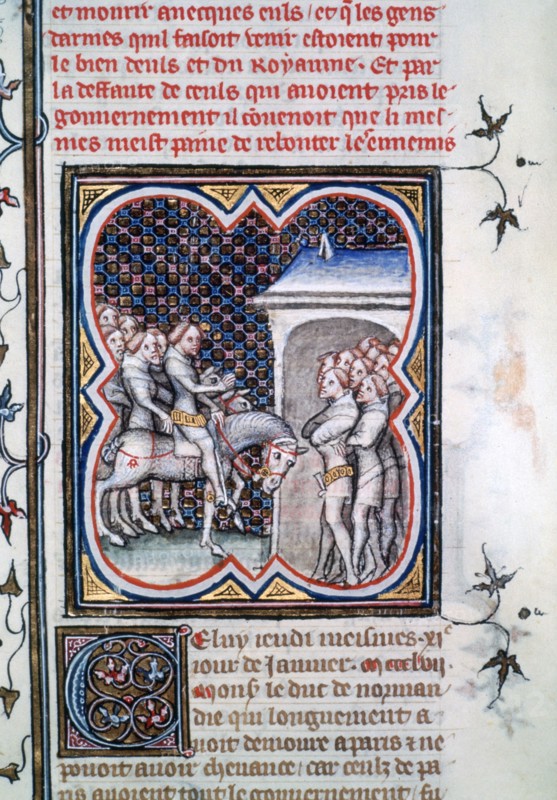 et mourir avecques euls / et q̄ les gens
darmes quil faisoit venir estoient pour
le bien deuls et du Royaume. Et par
la deffaute de ceuls qui avoient pris le
gouvernement il cōvenoit que li mes
mes meist paine de rebouter les ennemis
Celuy ieudi meismes. xi͏ᵉ
iour de Janvier. m ccc lvii.
mons͏ʳ le duc de norman
die qui longuement a
voit demoure a paris ⁊ ne
povoit avoir chevance / car ceulz de pa
ris avoient tout le gouvernement / fu